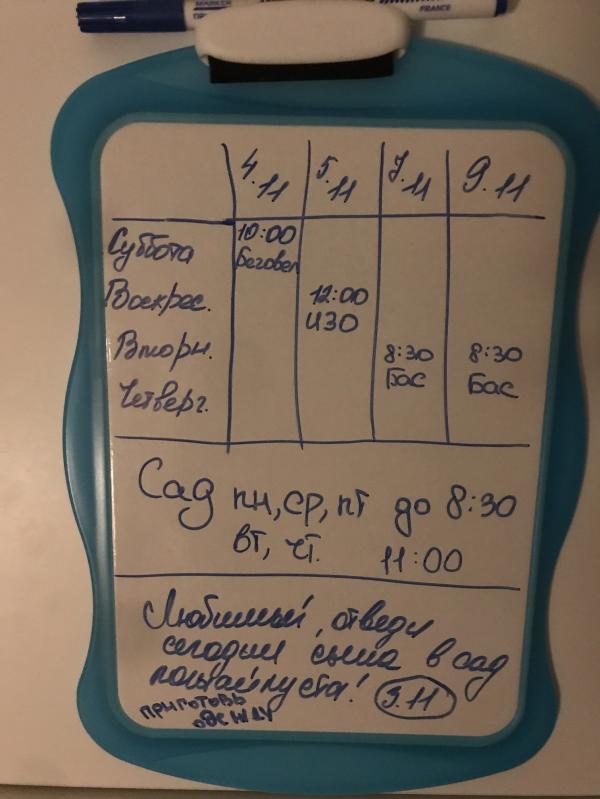 MARKER
FRANCE
4.11 5.11 7.11 9.11
Суббота 10:00
Беговел
Воскрес. 12:00
ИЗО
Вторн. 8:30 8:30
Бас Бас
Четверг.
Сад пн, ср, пт до 8:30
вт, чт. 11:00
Любимый, отведи
сегодня сына в сад
пожайлуста! 3.11
приготовь
одежду